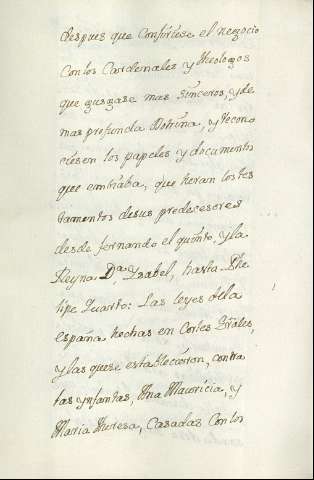 despues que Confiriese el negocio
Con los Cardenales y theologos
que juzgase mas sinceros, y de
mas profunda Dotrina, y recono
ciesen los papeles y documentos
que embiaba, que heran los tes
tamentos de sus predecesores
desde fernando el quinto, y la
Reyna D.ª Ysabel, hasta Phe
lipe Quarto: Las leyes de la
españa hechas en Cortes Grãles,
y las que se establecieron, contra
las ynfantas, Ana Mauricia, y
Maria theresa, Casadas Con los